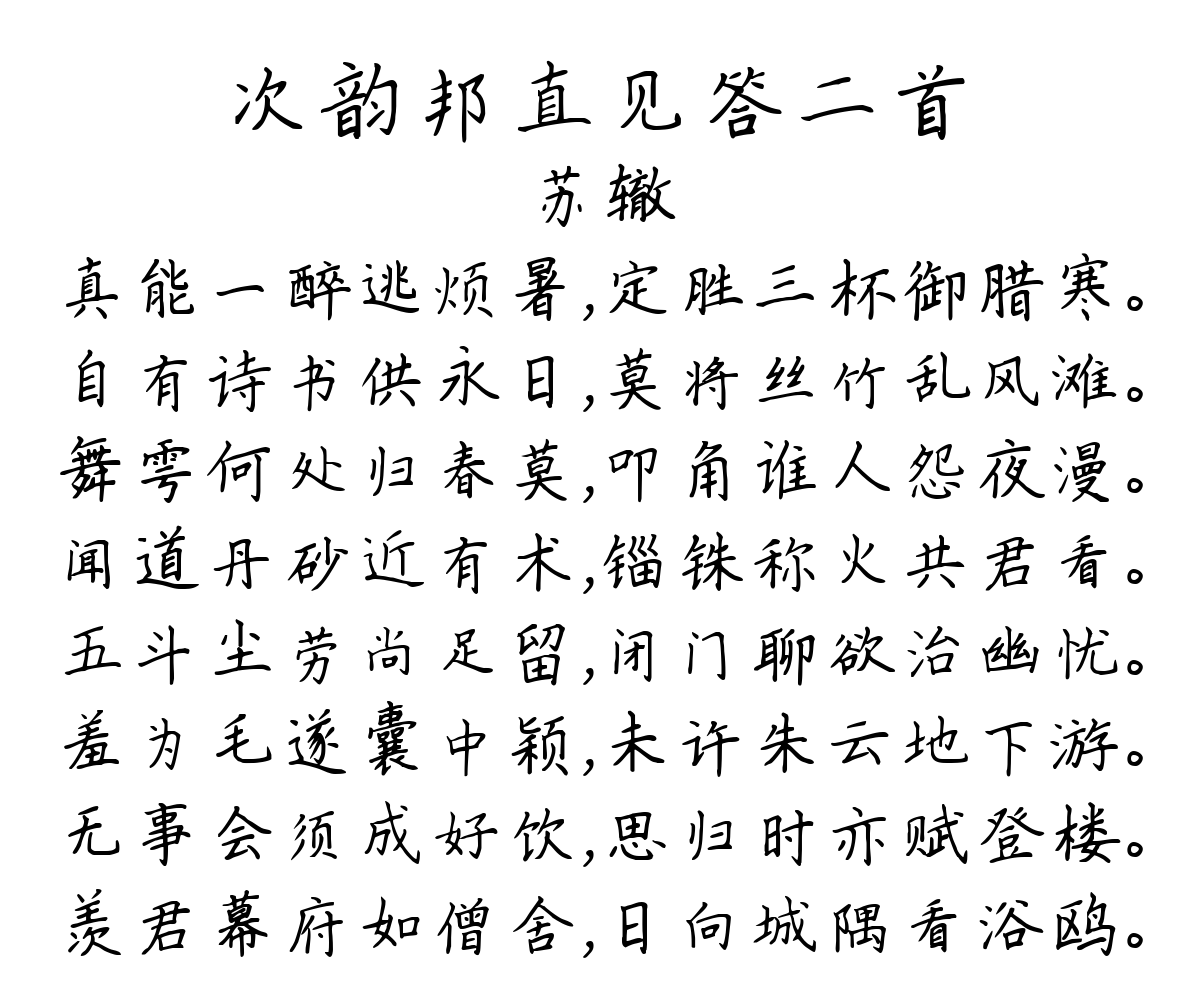 次韵邦直见答二首
苏辙
真能一醉逃烦暑,定胜三杯御腊寒。
自有诗书供永日,莫将丝竹乱风滩。
舞雩何处归春莫,叩角谁人怨夜漫。
闻道丹砂近有术,锱铢称火共君看。
五斗尘劳尚足留,闭门聊欲治幽忧。
羞为毛遂囊中颖,未许朱云地下游。
无事会须成好饮,思归时亦赋登楼。
羡君幕府如僧舍,日向城隅看浴鸥。